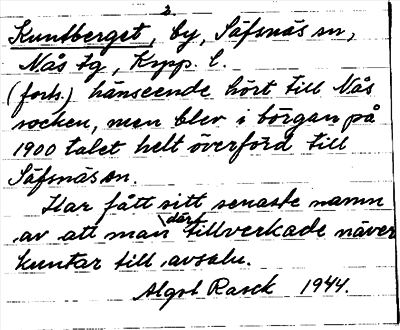 2.
Kuntberget, by, Säfsnäs sn,
Nås tg, Kopp. l.
(forts.) hänseende hört till Nås
socken, men blev i börgan på
1900 talet helt överförd till
Säfsnäs sn.
Har fått sitt senaste namn
av att man därst tillverkade näver
kuntar till avsalu.
Algot Rasck 1944.